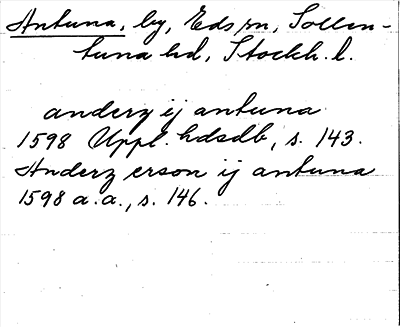 Antuna, by, Eds sn, Sollen-
tuna hd, Stockh. l.
anderz ij antuna
1598 Uppl. hdsdb, s. 143.
Anderz erson ij antuna
1598 a.a., s. 146.